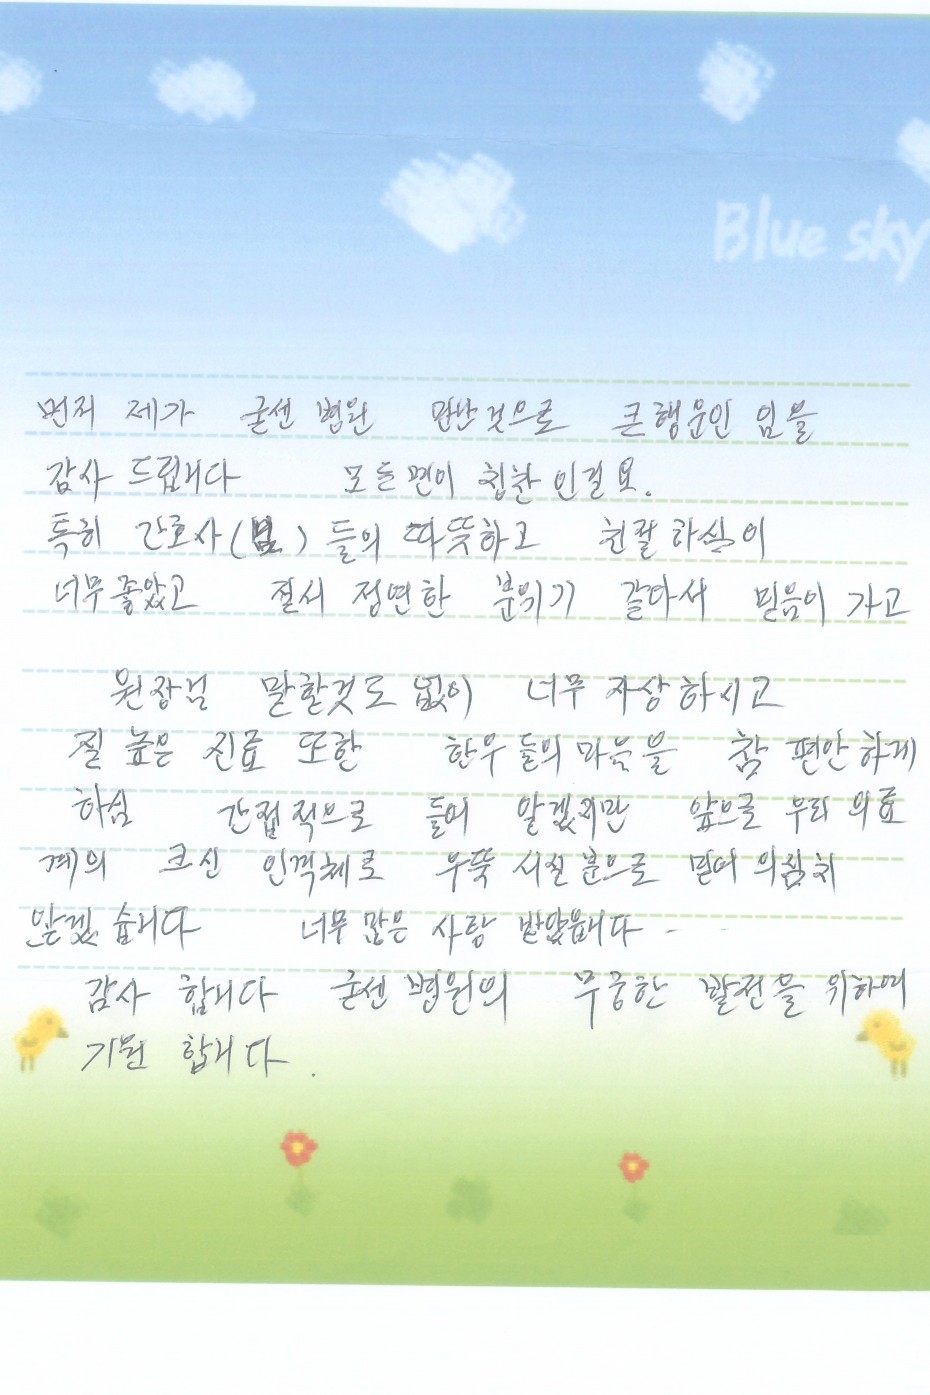 Blue sky
먼저 제가 굳센병원 만난것으로 큰행운인 임을
감사 드립니다 모든면이 칭찬 인걸요.
특히 간호사(님) 들의 따뜻하고 친절하심이
너무좋았고 질서 정연한 분위기 같아서 믿음이 가고
원장님 말할것도 없이 너무 자상하시고
질 높은 진료 또한 환우들의 마음을 참 편안하게
하심 간접적으로 들어 알겠지만 앞으로 우리 의료
계의 크신 인격체로 우뚝 시실분으로 믿어 의심치
않겠습니다 너무 많은 사랑 받았읍니다 - -
감사 합니다 굳센병원의 무궁한 발전을 위하여
기원 합니다.